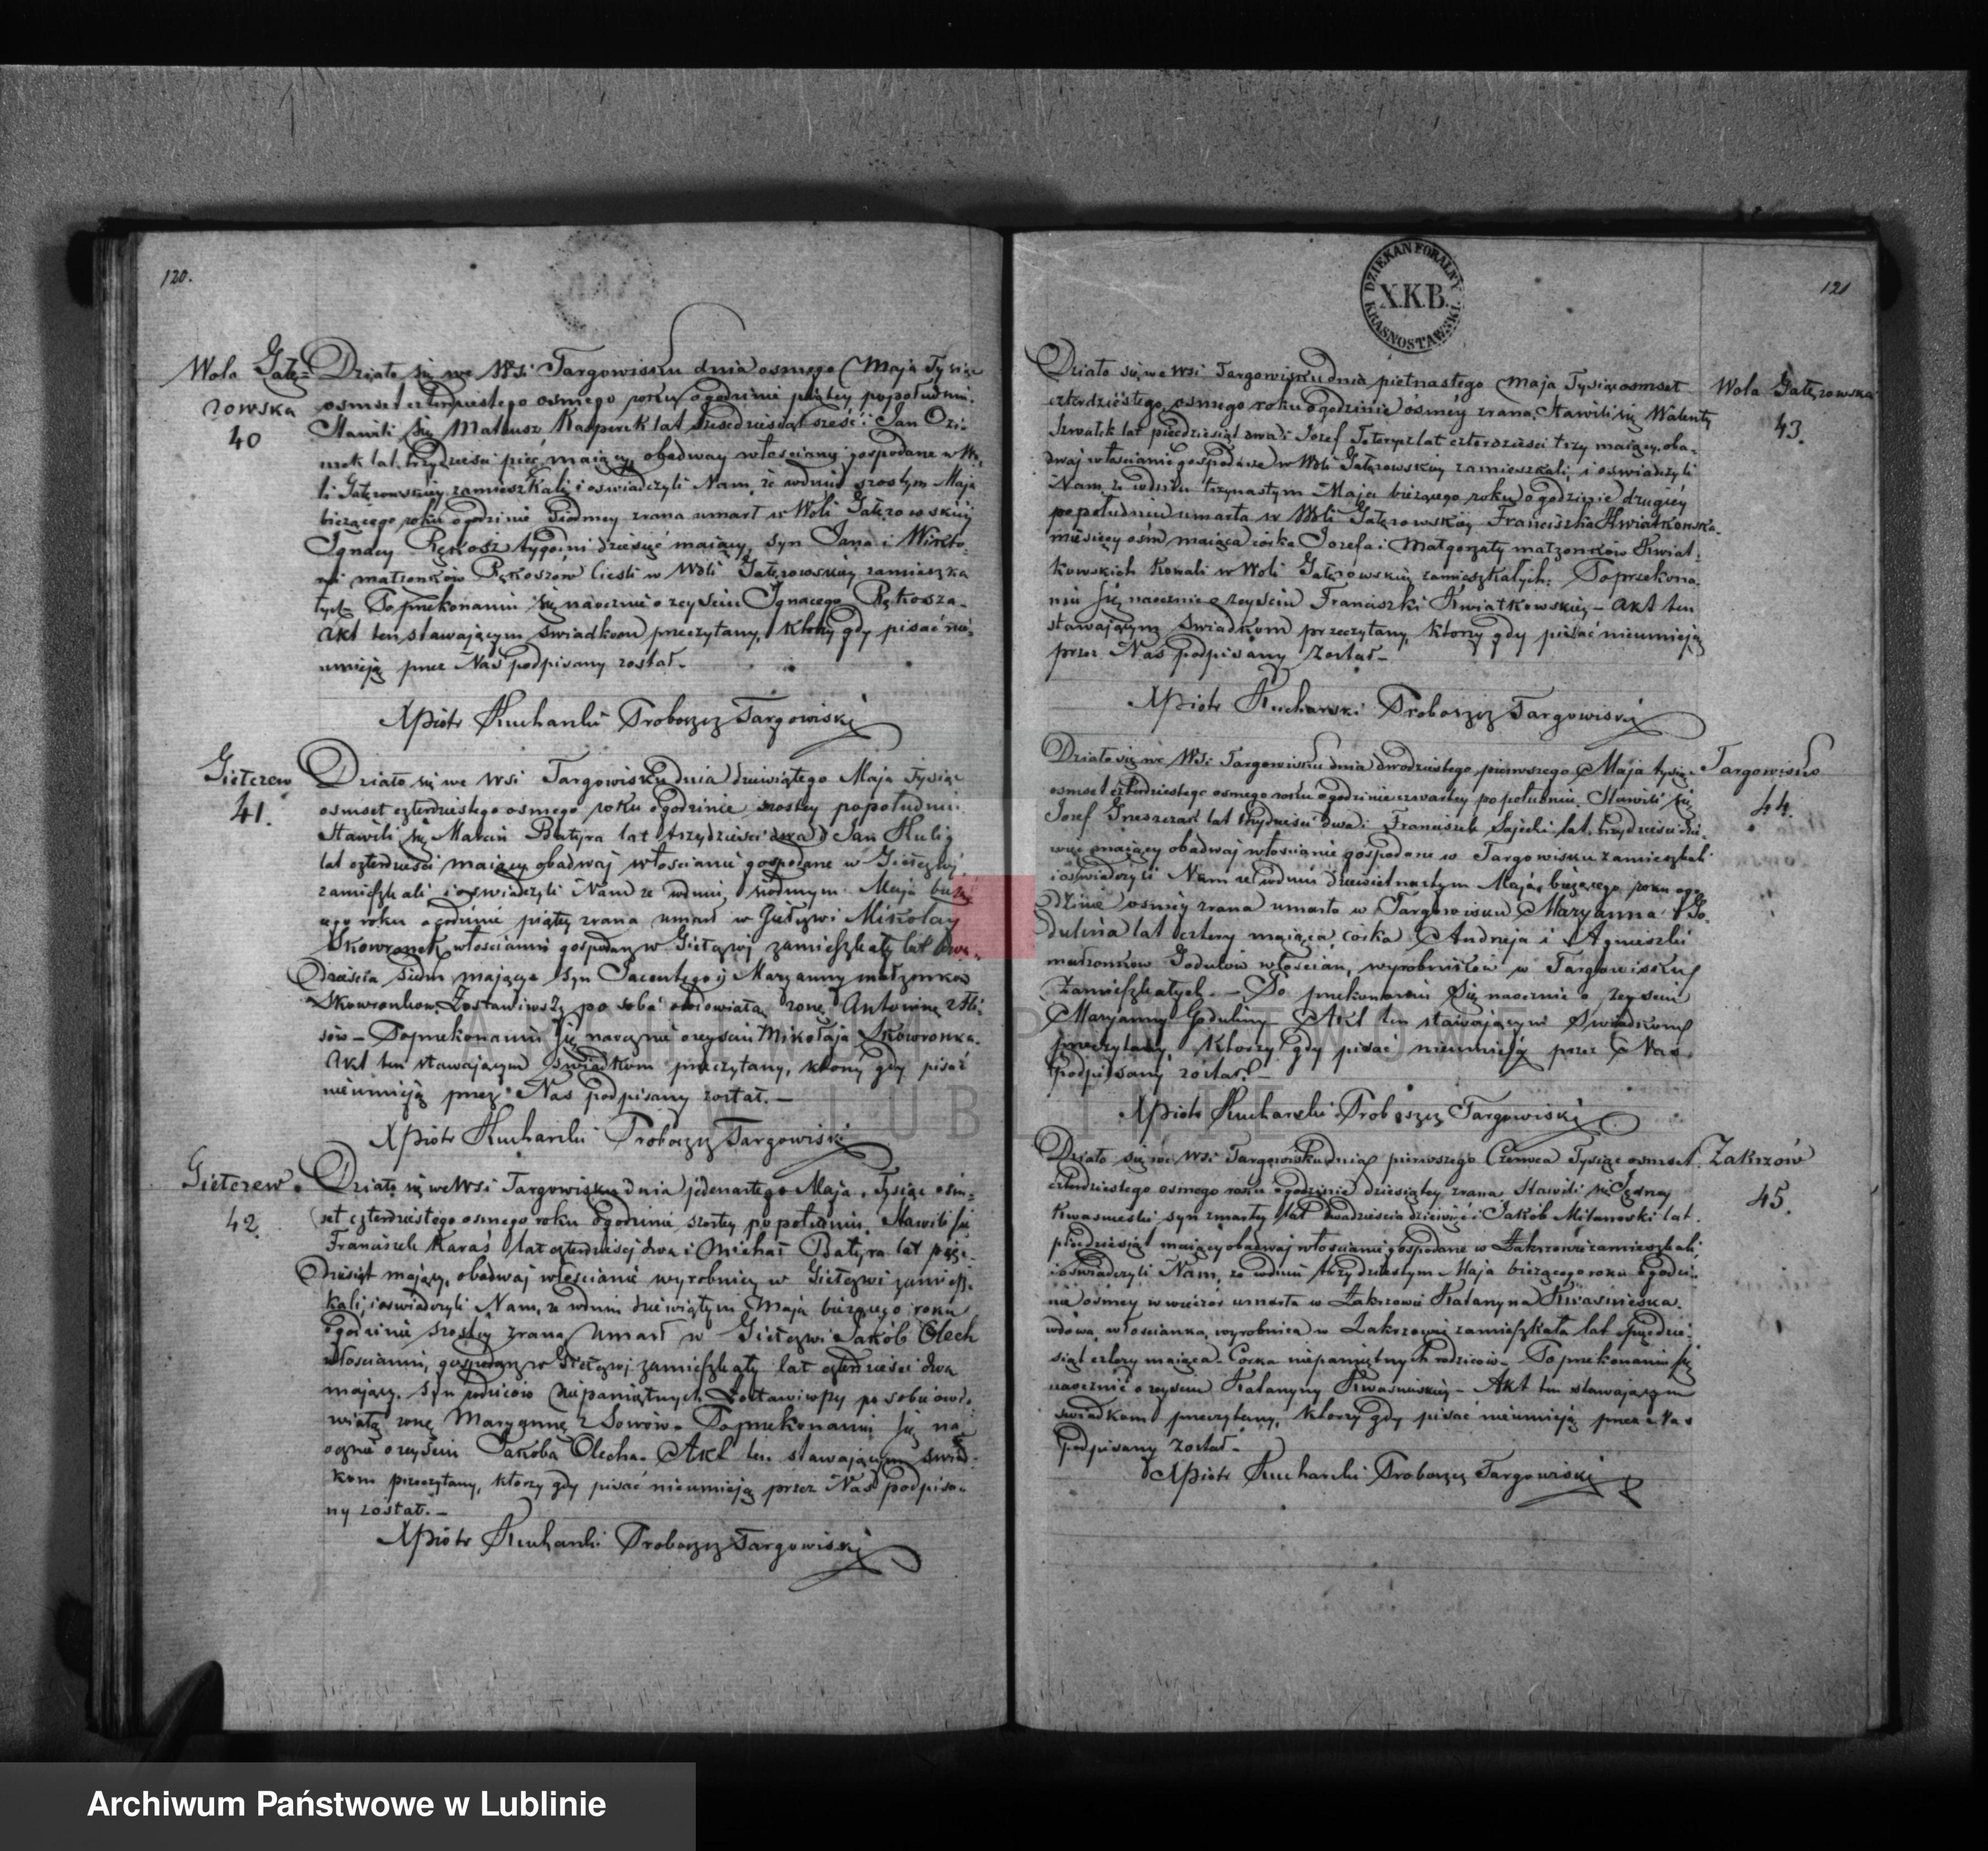 120.
Wola Gałę=
zowska
40
Działo się we Wsi Targowisku dnia osmego Maja Tysiąc
osmset czterdziestego osmego roku o godzinie piątey popołudniu.
Stawili się Mateusz Kasperek lat sześcdziesiąt sześć i Jan Ozi-
mek lat trzydzieści pięć maiący, obadway włościanie gospodarze w Wo-
li Gałęzowskiey zamieszkali, i oswiadczyli Nam, że wdniu szostym Maja
bieżącego roku o godzinie siodmey zrana umarł w Woli Gałęzowskiey
Ignacy Rękosz tygodni dziesięć maiący, syn Jana i Wikto-
ryi małżonków Rękoszów Cieśli w Woli Gałęzowskiey zamieszka
łych. Po przekonaniu się naocznie o zeyściu Ignacego Rękosza-
Akt ten stawającym świadkom przeczytany, ktorzy gdy pisać nie-
umieją przez Nas podpisany został.-
X Piotr Kucharski Proboszcz Targowiski
Giełczew
41.
Działo się we Wsi Targowisku dnia dziewiątego Maja tysiąc
osmset czterdziestego osmego roku o godzinie szostey popołudniu.
Stawili się Marcin Batyra lat trzydzieści dwa i Jan Hulig
lat czterdzieści maiący obadwaj włościanie gospodarze w Giełczwi
zamieszkali, i oswiadczyli Nam że wdniu siodmym Maja bieżą
cego roku o godzinie piątey zrana umarł w Giełczwi Mikołay
Skowronek, włościanin gospodarz w Giełczwi zamieszkały lat dwa-
dzieścia siedm mający syn Jacentego i Maryanny małżonków
Skowronków. Zostawiwszy po sobie owdowiałą żonę Antoninę z
sów- Po przekonaniu się naocznie o zeyściu Mikołaja Skowronka.
Akt ten stawającym świadkom przeczytany, ktorzy gdy pisać
nieumieją przez Nas podpisany został.-
X Piotr Kucharski Proboszcz Targowiski
Giełczew.
42.
Działo się we Wsi Targowisku dnia jedenastego Maja, Tysiąc osm-
set czterdziestego osmego roku o godzinie szostey popołudniu. Stawili się
Franciszek Karaś lat czterdzieści dwa i Michał Batyra lat pięć-
dziesiąt mający, obadwaj włościanie wyrobnicy w Giełczwi zamiesz-
kali, i oswiadczyli Nam, że wdniu dziewiątym Maja bieżącego roku
o godzinie szostey zrana umarł w Giełczwi Jakób Olech
włościanin, gospodarz w Giełczwi zamieszkały lat czterdzieści dwa
mający. syn rodziców niepamiętnych Zostawiwszy po sobie owdo-
wiałą żonę Maryannę z Sowów. Po przekonaniu się na-
ocznie o zeyściu Jakoba Olecha. Akt ten stawającym świad-
kom przeczytany, ktorzy gdy pisać nieumieją przez Nas podpisa-
ny został.-
X Piotr Kucharski Proboszcz Targowiski
121
DZIEKAN FORALNY
X.K.B.
KRASNOSTAWSKI
Wola Gałęzowska
43.
Działo się we Wsi Targowisku dnia piętnastego Maja Tysiąc osmset
czterdziestego osmego roku o godzinie ósméy zrana. Stawili się Walenty
Szwałek lat pięćdziesiąt dwa i Jozef Teteryz lat czterdzieści trzy maiący, oba-
dwaj włościanie gospodarze w Woli Gałęzowskiey zamieszkali, i oswiadczyli
Nam że wdniu trzynastym Maja bieżącego roku o godzinie drugiéy
popołudniu umarła w Woli Gałęzowskiey Franciszka Kwiatkowska
miesięcy ośm maiąca córka Jozefa i Małgorzaty małżonków Kwiat-
kowskich Kowali w Woli Gałęzowskiey zamieszkałych: Po przekona-
niu się naocznie o zeyściu Franciszki Kwiatkowskiey- Akt ten
stawającym świadkom przeczytany, ktorzy gdy pisać nieumieją
przez Nas podpisany został-
X Piotr Kucharski Proboszcz Targowiski
Targowisko
44.
Działo się we Wsi Targowisku dnia dwudziestego pierwszego Maja tysiąc
osmset czterdziestego osmego roku o godzinie czwartey popołudniu. Stawili się
Jozef Greszczak lat trzydzieści dwa i Franciszek Sajecki lat trzydzieści dzie-
więć maiący obadwaj włościanie gospodarze w Targowisku zamieszkali
i oswiadczyli Nam że wdniu dziewietnastym Maja bieżącego roku o go-
dzinie osmey zrana umarła w Targowisku Maryanna Go-
dulina lat cztery maiąca, córka Andrzeja i Agnieszki
małżonków Godulów włościan, wyrobników w Targowisku
zamieszkałych.- Po przekonaniu się naocznie o zeyściu
Maryanny Goduliny- Akt ten stawającym świadkom
przeczytany, ktorzy gdy pisać nieumieją przez Nas
podpisany został.-
X Piotr Kucharski Proboszcz Targowiski
Zakrzów
45.
Działo się we Wsi Targowisku dnia pierwszego Czerwca Tysiąc osmset
czterdziestego osmego roku o godzinie dziesiątey zrana Stawili się Jędrzey
Kwasnieski syn zmarłey lat dwadzieścia dziewięć i Jakób Milanoski lat
pięćdziesiąt maiący obadwaj włościanie gospodarze w Zakrzowie zamieszkali,
i oświadczyli Nam, że wdniu trzydziestym Maja bieżącego roku o godzi-
nie osmey wwieczór umarła w Zakrzowie Katarzyna Kwasnieska.
wdowa, włościanka, wyrobnica w Zakrzowie zamieszkała lat pięćdzie-
siąt cztery maiąca- Corka niepamiętnych rodziców- Po przekonaniu się
naocznie o zeyściu Katarzyny Kwasnieskiey- Akt ten stawającym
świadkom przeczytany, ktorzy gdy pisać nieumieją przez Nas
podpisany został.-
X Piotr Kucharski Proboszcz Targowiski
ARCHIWUM PAŃSTWOWE
W LUBLINIE
Archiwum Państwowe w Lublinie